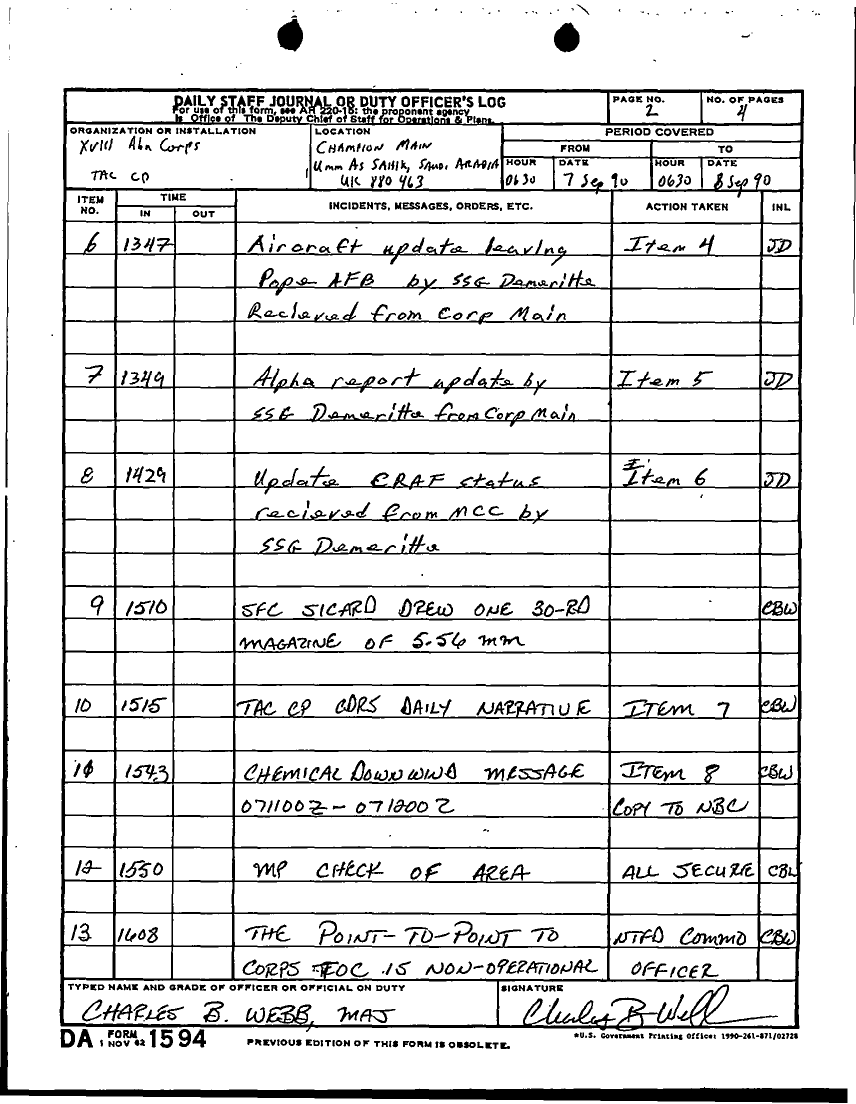 DAILY STAFF JOURNAL OR DUTY OFFICER'S LOG
For use of this form, see AR 220-15: the proponent agency
is Office of The Deputy Chief of Staff for Operations & Plans.
PAGE NO.
2
NO. OF PAGES
4
ORGANIZATION OR INSTALLATION
XVIII Abn Corps
TAC CP
LOCATION
CHAMPION MAIN
Umm As SAHIK, SAUDI ARABIA
UK 880 463
PERIOD COVERED
FROM
TO
HOUR
0630
DATE
7 Sep 90
HOUR
0630
DATE
8 Sep 90
ITEM NO.
TIME
IN
OUT
INCIDENTS, MESSAGES, ORDERS, ETC.
ACTION TAKEN
INL
6 1347 Aircraft update leaving Item 4 JD
Pope AFB by SSG Demeritte
Recieved from Corp Main
7 1349 Alpha report update by Item 5 JD
SSG Demeritte from Corp Main
8 1429 Update CRAF status Item 6 JD
recieved from MCC by
SSG Demeritte
9 1510 SFC SICARD DREW ONE 30-RD CBW
MAGAZINE OF 5.56 mm
10 1515 TAC CP CDRS DAILY NARRATIVE ITEM 7 CBW
11 1543 CHEMICAL DOWNWIND MESSAGE ITEM 8 CBW
071100Z - 071200Z COPY TO NBC
12 1550 MP CHECK OF AREA ALL SECURE CBW
13 1608 THE POINT-TO-POINT TO NTFD COMMO CBW
CORPS IS NON-OPERATIONAL OFFICER
TYPED NAME AND GRADE OF OFFICER OR OFFICIAL ON DUTY
CHARLES B. WEBB, MAJ
SIGNATURE
Charles B Webb
DA FORM 1 NOV 62 1594
PREVIOUS EDITION OF THIS FORM IS OBSOLETE.
*U.S. Government Printing Office: 1990-261-871/02728